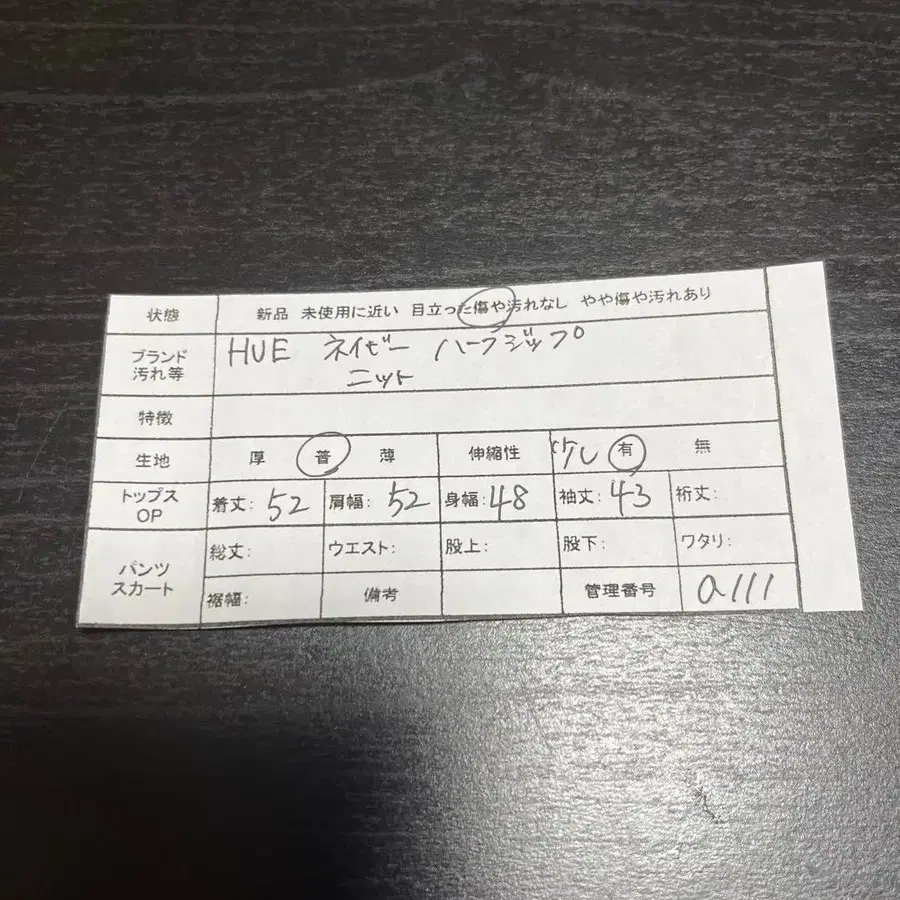 状態 新品 未使用に近い 目立った傷や汚れなし やや傷や汚れあり
ブランド 汚れ等 HUE ネイビー ハーフジップ
ニット
特徴
生地 厚 普 薄 伸縮性 少し 有 無
トップス OP 着丈: 52 肩幅: 52 身幅: 48 袖丈: 43 裄丈:
パンツ スカート 総丈: ウエスト: 股上: 股下: ワタリ:
裾幅: 備考 管理番号 a111